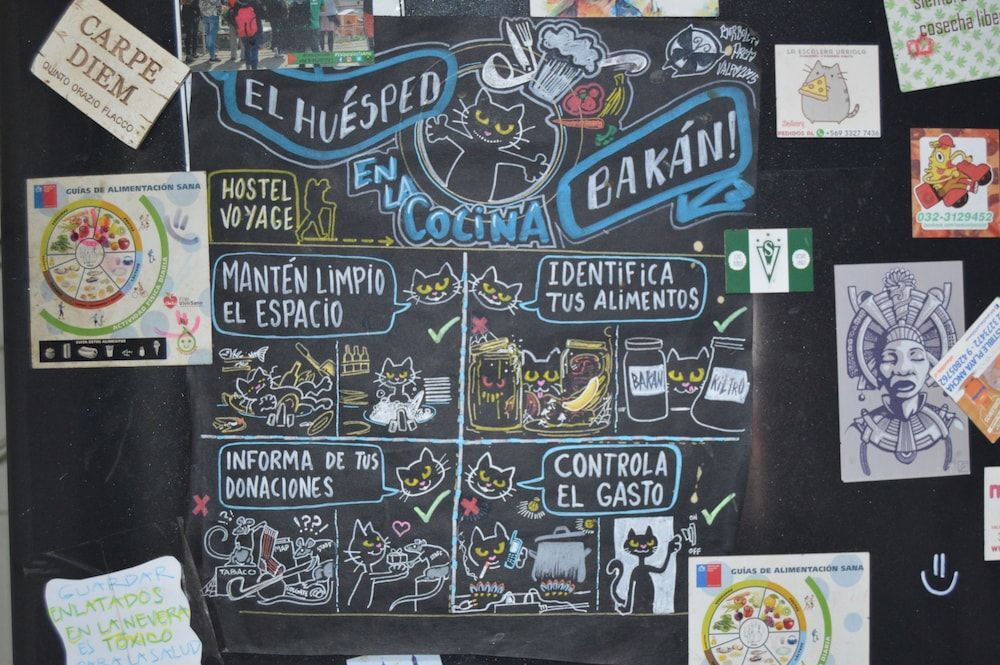 CARPE
DIEM
QUINTO ORAZIO FLACCO
EL HUÉSPED
BAKÁN!
EN LA
COCINA
HOSTEL
VOYAGE
MANTÉN LIMPIO
EL ESPACIO
IDENTIFICA
TUS ALIMENTOS
BAKÁN
KILTRO
INFORMA DE TUS
DONACIONES
!??
MAP
TABACO
COLGATE
CONTROLA
EL GASTO
ON
OFF
GUÍAS DE ALIMENTACIÓN SANA
ACTIVIDAD FÍSICA DIARIA
GUARDAR
ENLATADOS
EN LA NEVERA
ES TÓXICO
PARA LA SALUD
cosecha libe
LA ESCALERA URRIOLA
Delivery
PEDIDOS AL +569 3327 7436
032-3129452
S
GUÍAS DE ALIMENTACIÓN SANA